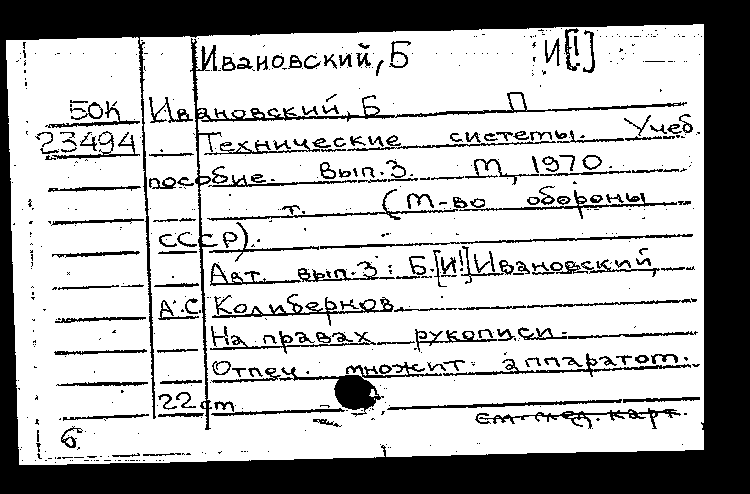 Ивановский, Б И[!]
БОК Ивановский, Б П
23494 Технические системы. Учеб.
пособие. Вып.3. М, 1970.
т. (М-во обороны
СССР).
Авт. вып.3: Б.[И!]Ивановский,
А.С. Колибернов.
На правах рукописи.
Отпеч. множит. аппаратом.
22 см
см. след. карт.
6